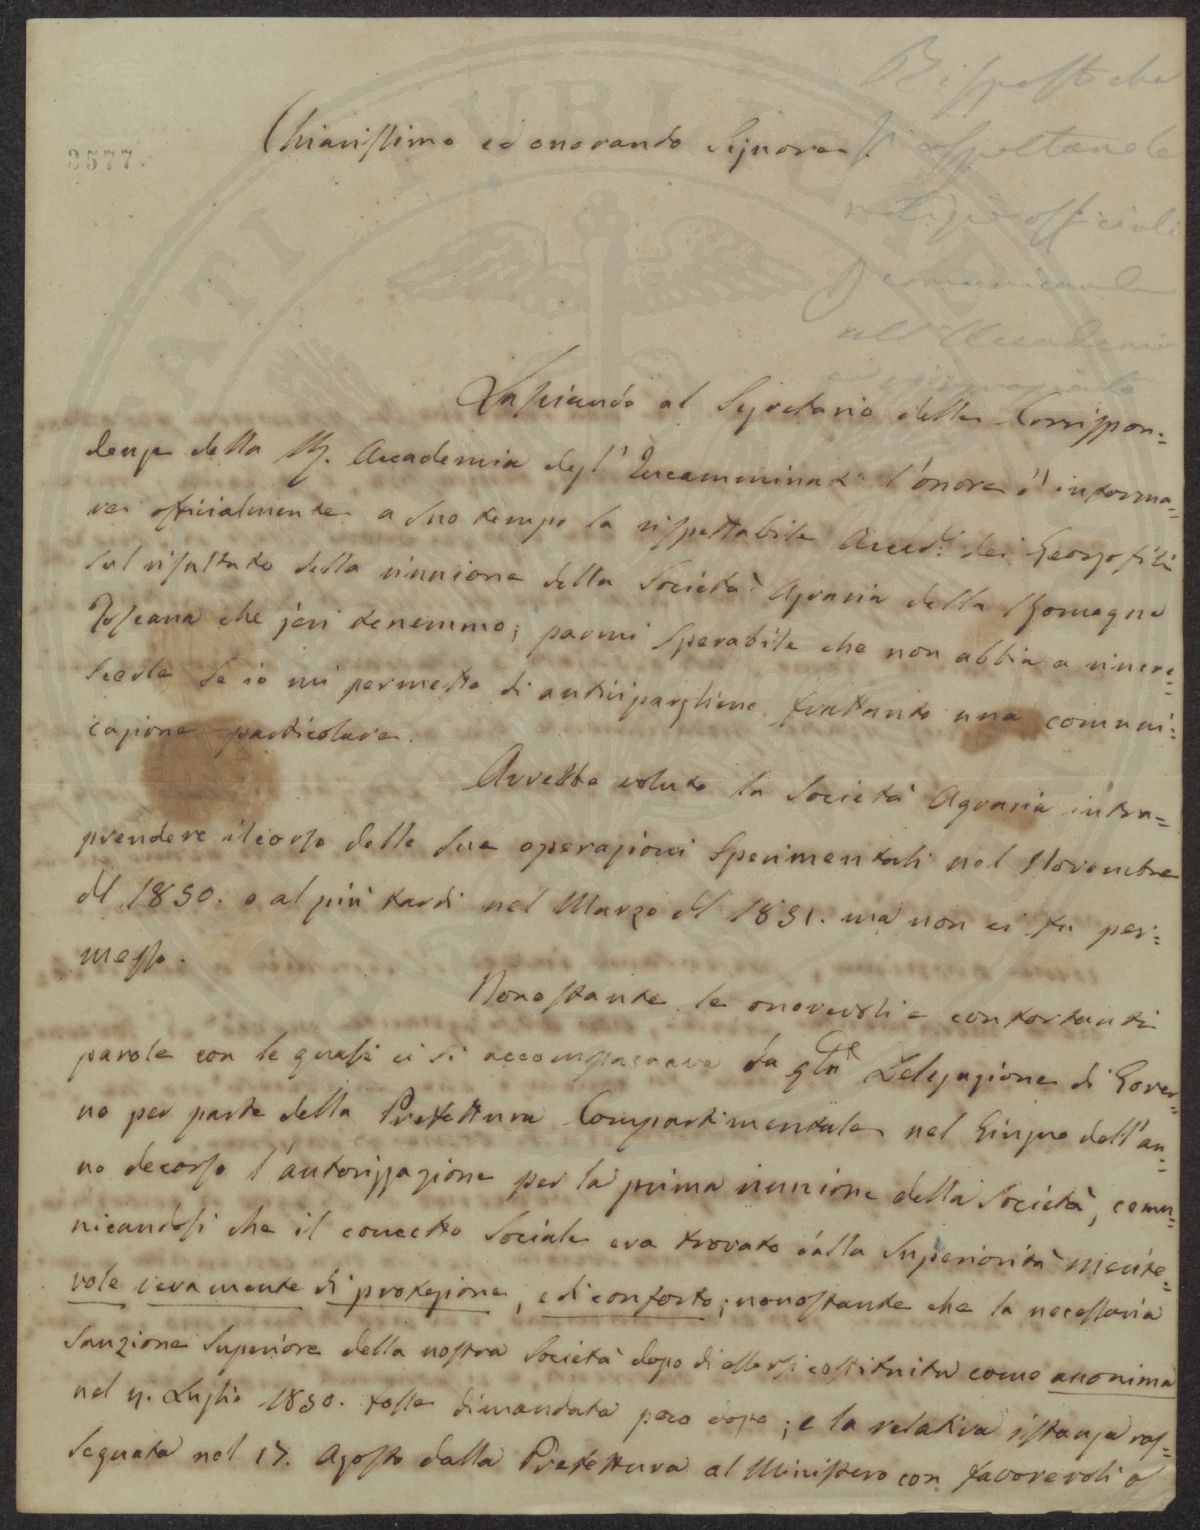 Risposto che
si aspettano le
notizie officiali
per comunicarle
all'Accademia
3577.
Chiarissimo ed onorando Signore
Lasciando al Segretario delle Corrispon=
denze della Accademia degl'Incamminati l'onore d'informa=
re officialmente a suo tempo la rispettabile Accad.ª dei Georgofili
sul risultato della riunione della Società Agraria della Romagna
Toscana che jeri tenemmo; parmi sperabile che non abbia a rincre=
scerle se io mi permetto di anticipargliene frattanto una comuni=
cazione particolare.
Avrebbe voluto la Società Agraria intra=
prendere il corso delle sue operazioni sperimentali nel Novembre
del 1850. o al più tardi nel Marzo del 1851. ma non ci fu per=
messo.
Nonostante le onorevoli e confortanti
parole con le quali ci si accompagnava da q.ta Delegazione di Gover=
no per parte della Prefettura Compartimentale nel Giugno dell'an=
no decorso l'autorizzazione per la prima riunione della Società, comu=
nicandosi che il concetto Sociale era trovato dalla Superiorità merite=
vole veramente di protezione, e di conforto; nonostante che la necessaria
Sanzione Superiore della nostra Società dopo di essersi costituita come anonima
nel Luglio 1850. fosse dimandata poco dopo; e la relativa istanza ras=
segnata nel 17. Agosto dalla Prefettura al Ministero con favorevoli